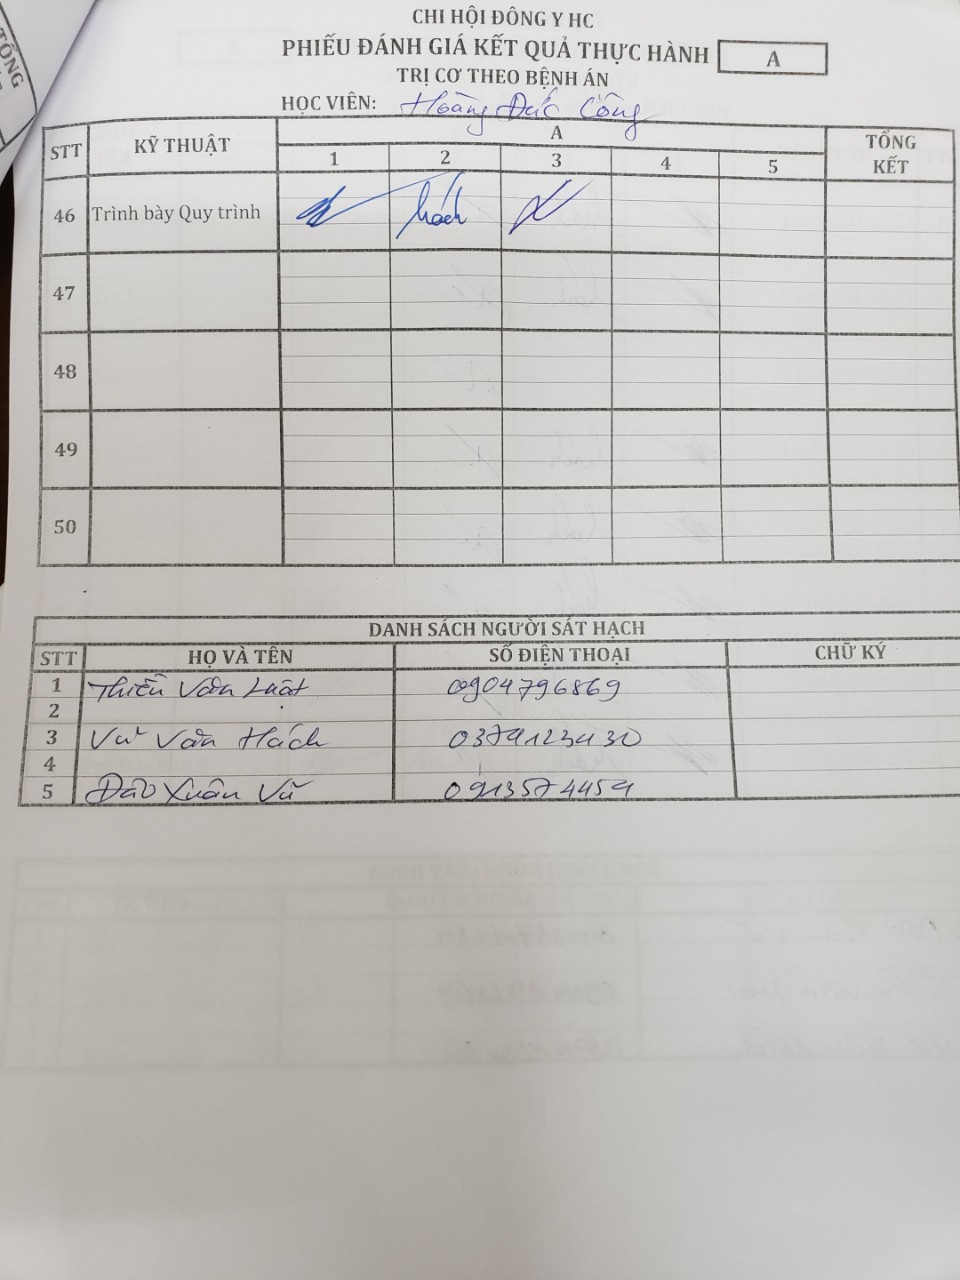 TỔNG
CHI HỘI ĐÔNG Y HC
PHIẾU ĐÁNH GIÁ KẾT QUẢ THỰC HÀNH A
TRỊ CƠ THEO BỆNH ÁN
HỌC VIÊN: Hoàng Đức Công
STT KỸ THUẬT A TỔNG KẾT
1 2 3 4 5
46 Trình bày Quy trình Hách
47
48
49
50
DANH SÁCH NGƯỜI SÁT HẠCH
STT HỌ VÀ TÊN SỐ ĐIỆN THOẠI CHỮ KÝ
1 Thiều Văn Luật 0904796869
2
3 Vũ Văn Hách
4
5 Đào Xuân Vũ